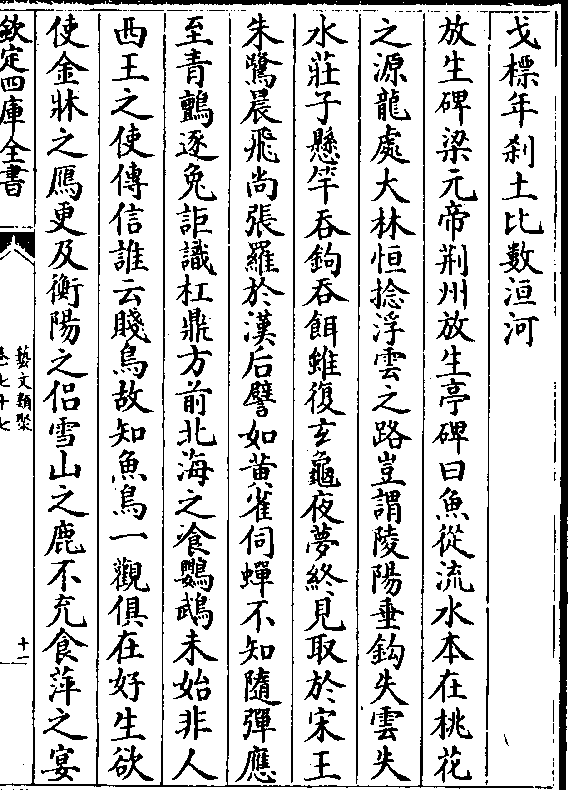 戈標年刹土比數洹河
放生碑梁元帝荆州放生亭碑曰魚從流水本在桃花
之源龍處大林恒捻浮雲之路豈謂陵陽垂鈎失雲失
水莊子懸竿吞鉤吞餌雖復玄龜夜夢終見取於宋王
朱鷺晨飛尚張羅於漢后譬如黄雀伺蟬不知隨彈應
至青鸇逐兔詎識杠鼎方前北海之飡鸚鵡未始非人
西王之使傳信誰云賤鳥故知魚鳥一觀俱在好生欲
使金牀之鴈更及衡陽之侣雪山之鹿不充食萍之宴
欽定四庫全書
藝文類聚
卷七十七
十一